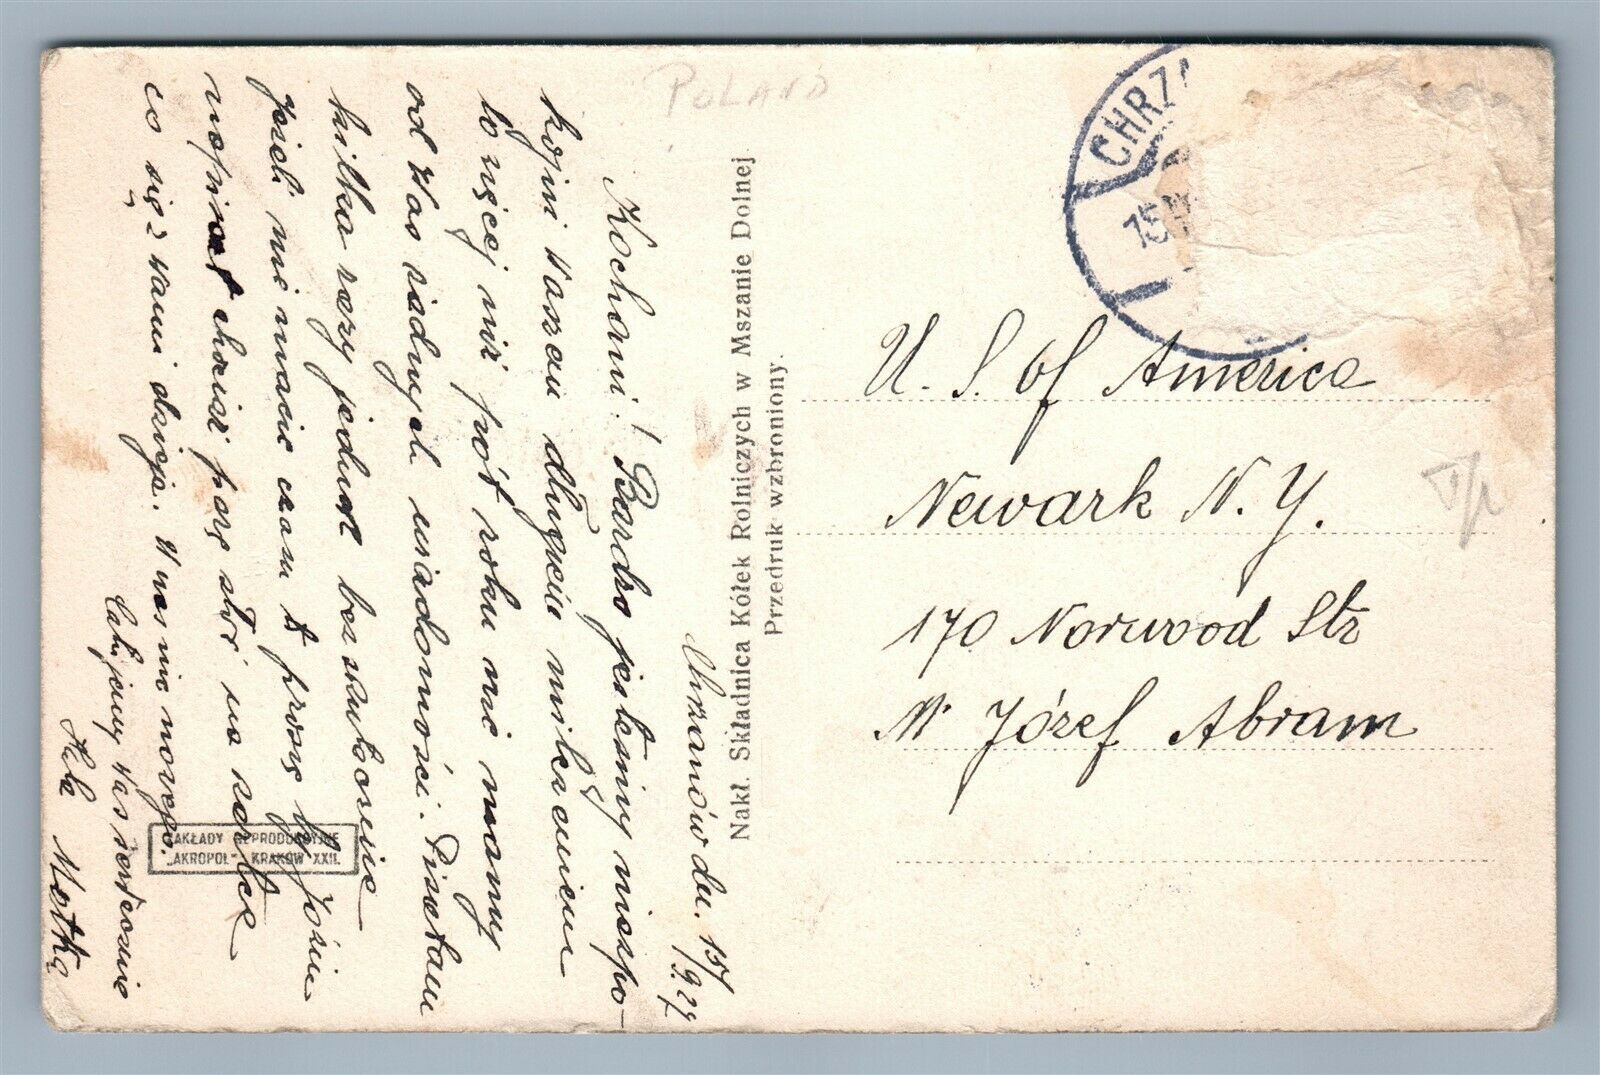 POLAND
CHRZA
15
Chrzanów dn. 15/9.27
Kochani! Bardzo jesteśmy niespo-
kojni Waszem długiem milczeniem
to więcej niż pół roku nie mamy
od Was żadnych wiadomości. Pisałam
kilka razy jednak bezskutecznie
jeżeli nie macie czasu to proszę by Józiu
napisał chociaż parę słów
co się z Wami dzieje. U nas nic nowego.
Całujemy Was serdecznie
Hela Matka
Nakł. Składnica Kółek Rolniczych w Mszanie Dolnej.
Przedruk wzbroniony.
ZAKŁADY REPRODUKCYJNE
„AKROPOL" KRAKÓW XXII.
U. S. of America
Newark N. Y.
170 Norwood Str
Mr Józef Abram